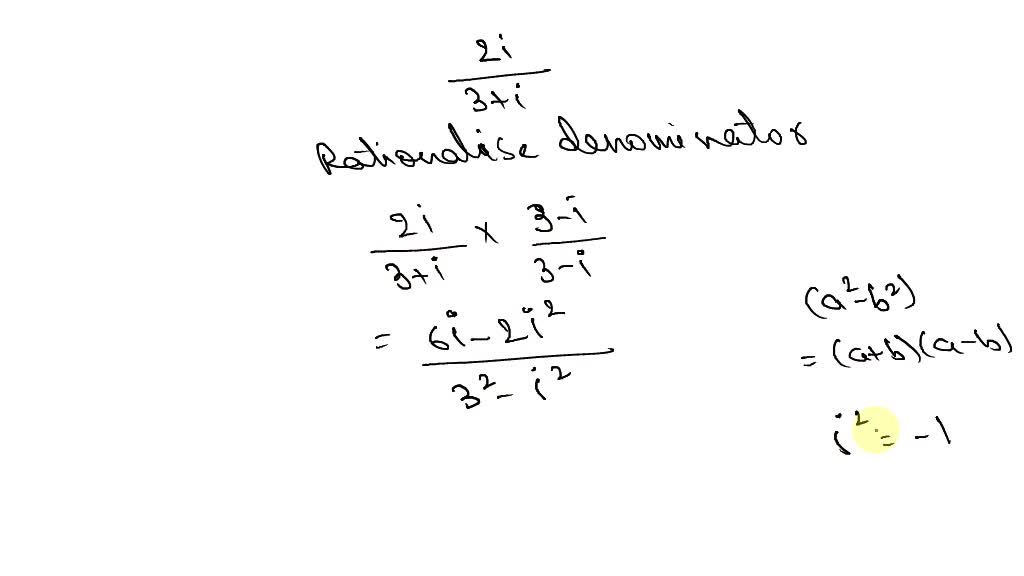 2i
3+i
Rationalise denominator
2i/3+i × 3-i/3-i
= 6i-2i²/3²-i²
(a²-b²)
= (a+b)(a-b)
i² = -1